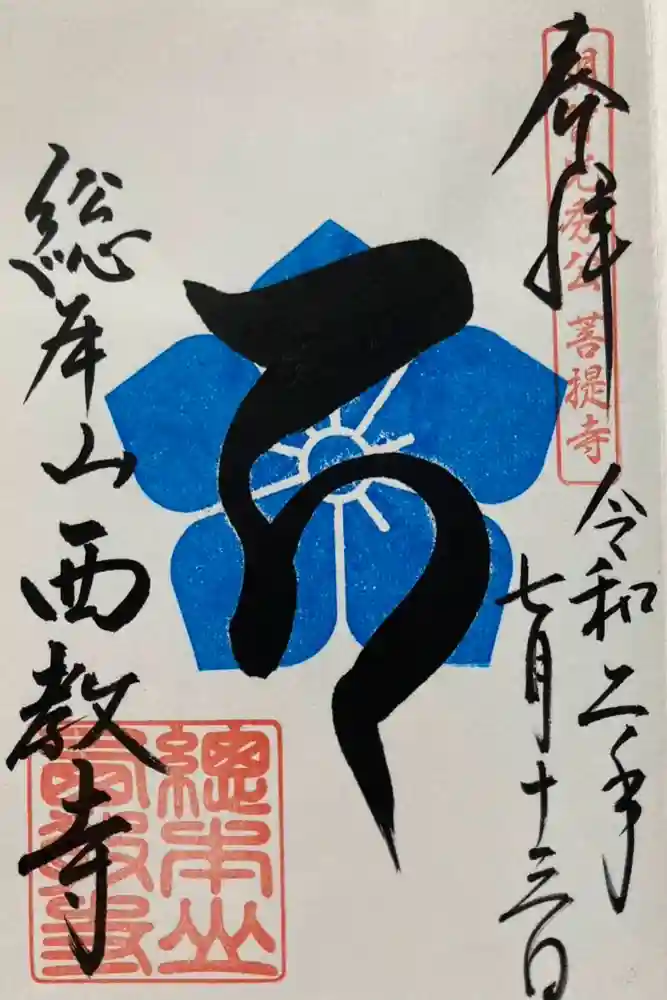 奉拝
明智光秀公 菩提寺
令和二年
七月十三日
総本山 西教寺
總本山
西教寺